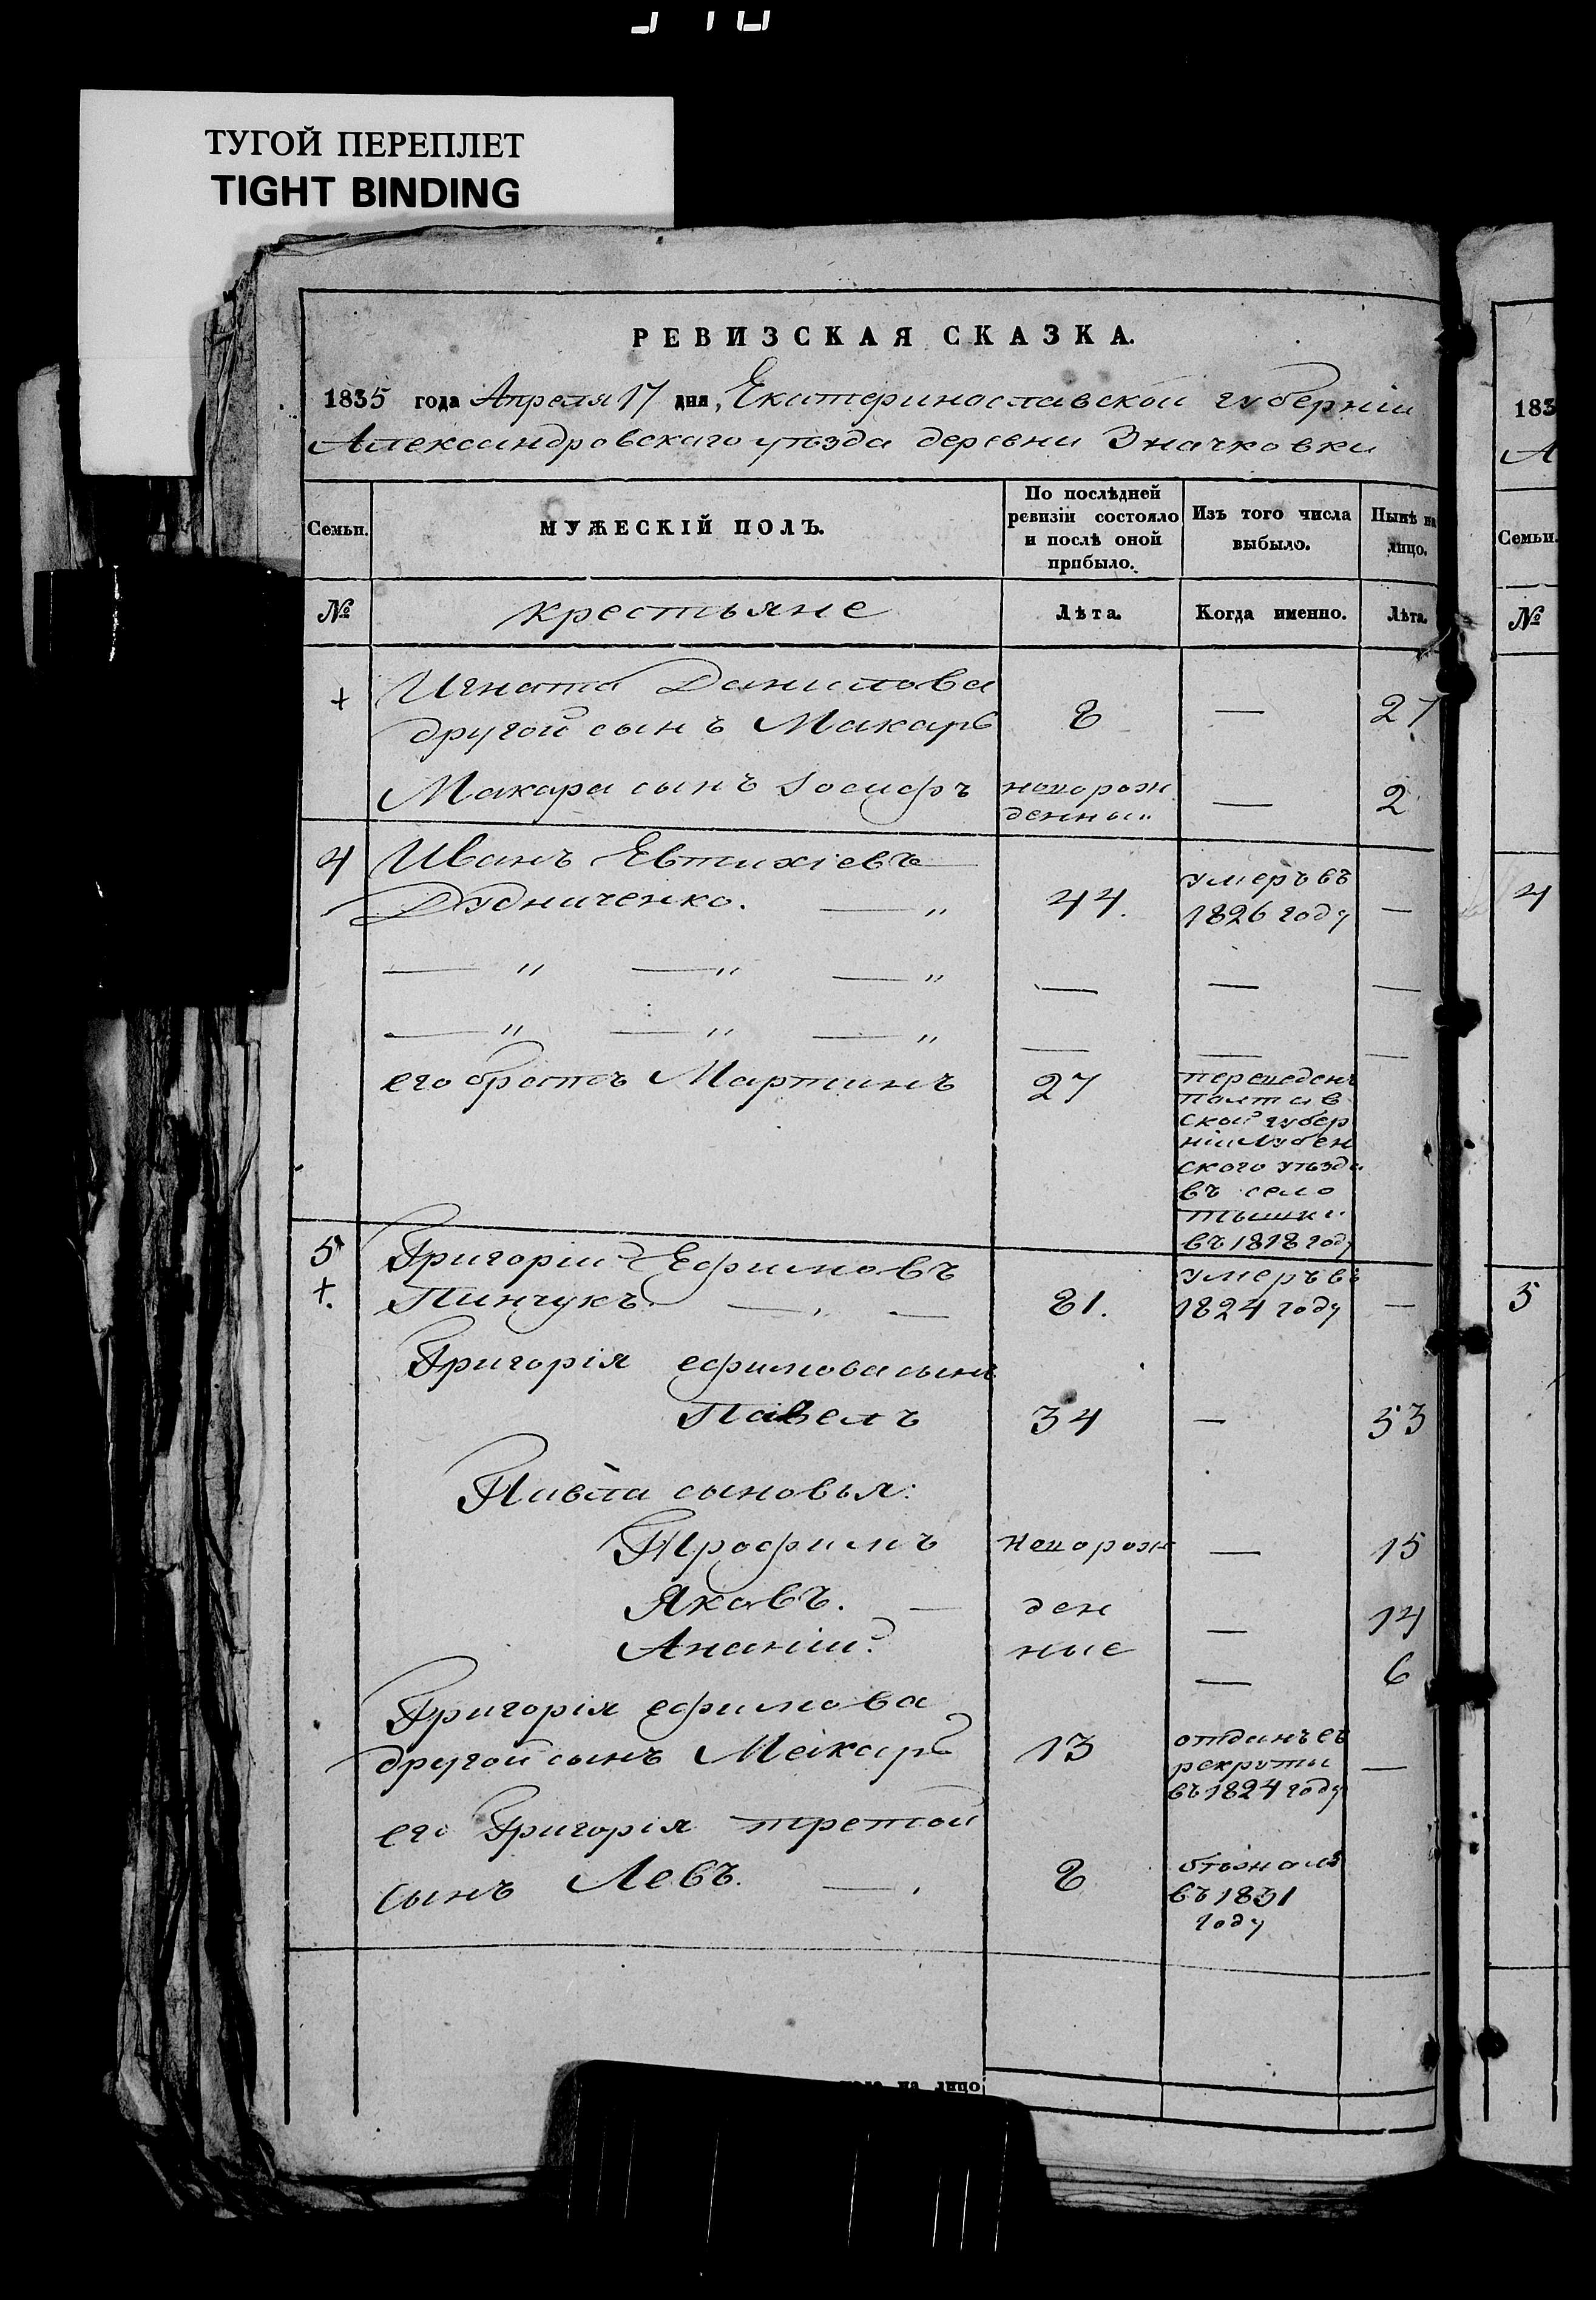 ТУГОЙ ПЕРЕПЛЕТ
TIGHT BINDING
РЕВИЗСКАЯ СКАЗКА.
1835 года Апреля 17 дня, Екатеринославской губерніи
Александровскаго уѣзда деревни Значковки
Семьи.
МУЖЕСКІЙ ПОЛЪ.
По послѣдней
ревизіи состояло
и послѣ оной
прибыло.
Изъ того числа
выбыло.
Нынѣ на
лицо.
№
крестьяне
Лѣта.
Когда именно.
Лѣта.
+ Игната Данилова
другой сынъ Макаръ 8 — 27
Макара сынъ Іосифъ новорож
денный — 2
4 Иванъ Евтихіевъ
Дудниченко. — „ 44. умеръ въ
1826 году —
— „ — „ — „ — — —
— „ — „ — „ — — —
его братъ Мартинъ 27 переведенъ
полтав
ской губер
ніи Лубен
ского уѣзда
въ село
Тышки
въ 1818 году
5 Григорій Ефимовъ
+. Пинчукъ — „ — 81. умеръ въ
1824 году —
Григорія ефимова сынъ
Павелъ 34 — 53
Павла сыновья:
Трофимъ новорож — 15
Яковъ. — ден — 14
Ананій. ные — 6
Григорія ефимова
другой сынъ Макаръ 13 отданъ въ
рекруты
въ 1824 году —
его Григорія третой
сынъ Левъ. — 8 бѣжалъ
въ 1831
году
на лицо
183
А
Семьи.
№
4
5